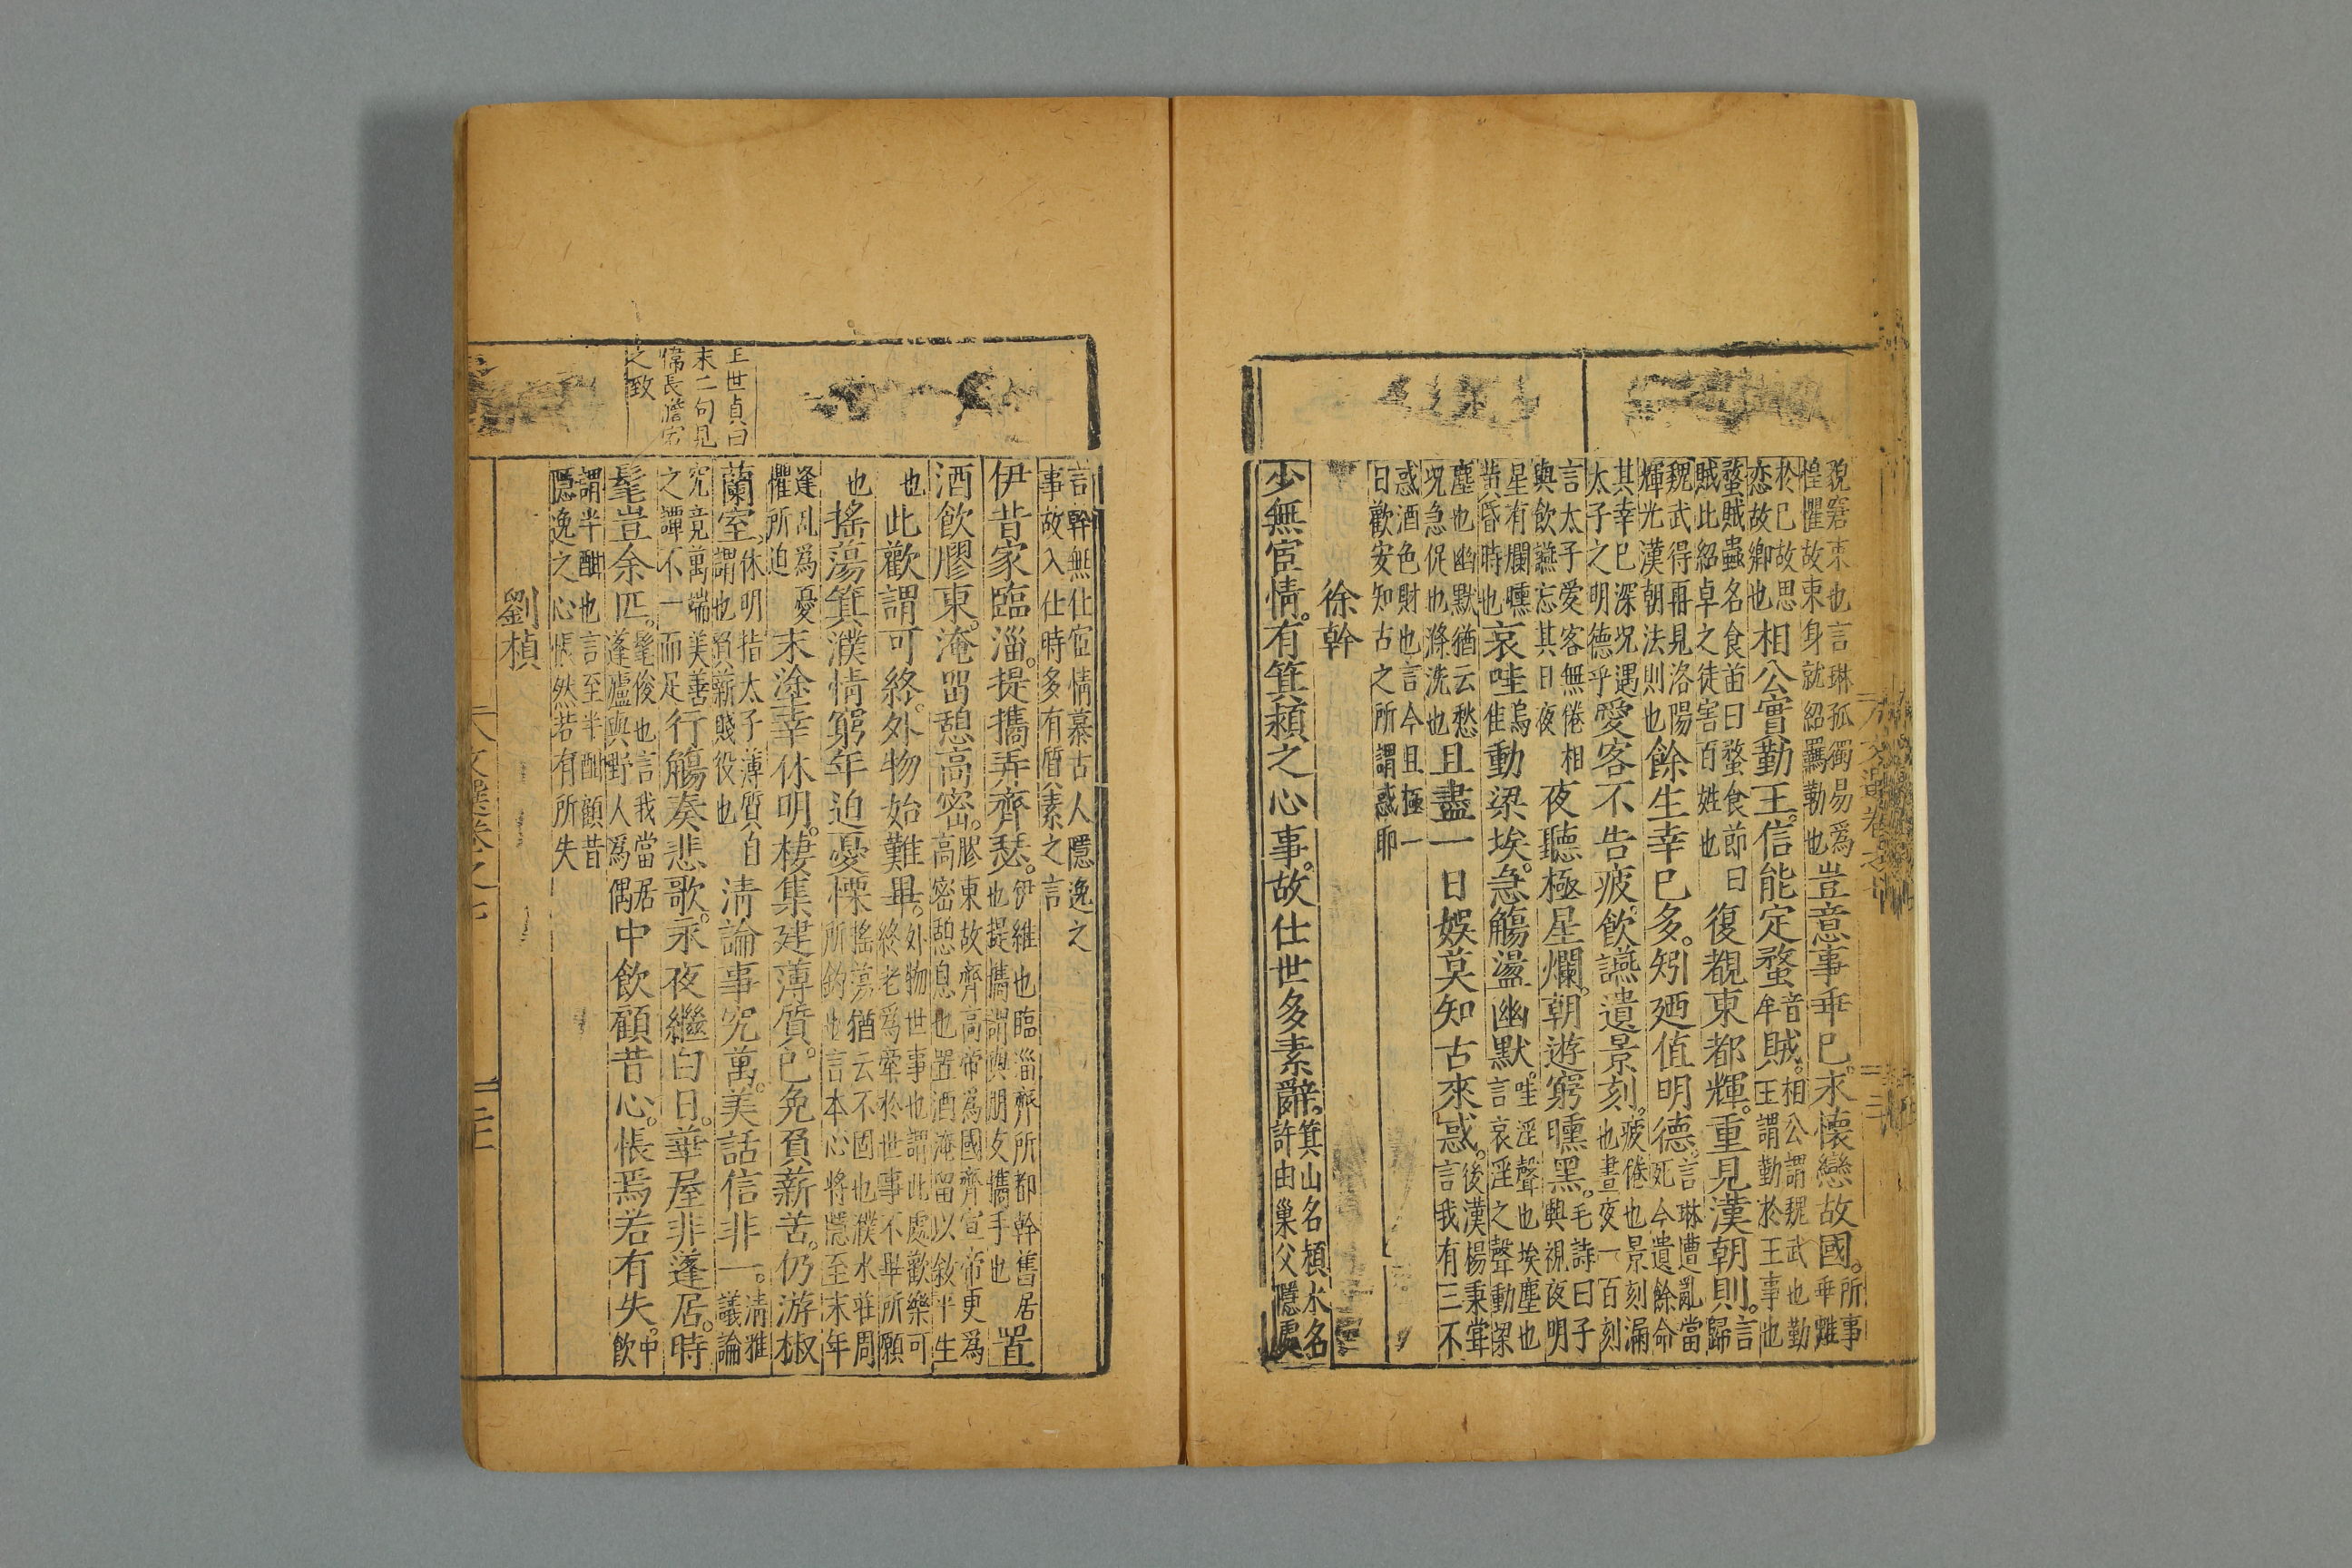 貌窘束也言琳孤獨易爲
惶懼故束身就紹羈勒也
豈意事乖巳求懷戀故國
所事乖
於巳故思
恋故鄉也
相公實勤王信能定蝥
音牟
賊
相公謂魏武也勤
王謂勤於王事也
蝥賊蟲名食苗曰蝥食節曰
賊此紹卓之徒害百姓也
復覩東都輝重見漢朝則
言
歸
魏武得再見洛陽
輝光漢朝法則也
餘生幸巳多矧廼值明德
言琳遭亂當
死今遺餘命
其幸巳深况遇
太子之明德乎
愛客不告疲飲讌遺景刻
疲倦也景刻漏
也晝夜一百刻
言太子愛客無倦相
與飲讌忘其日夜
夜聽極星爛朝遊窮曛黑
毛詩曰子
興視夜明
星有爛曛
黃昏時也
哀哇
烏佳
動梁埃急觴盪幽默
哇淫聲也埃塵也
言哀淫之聲動梁
塵也幽默猶云愁
况急促也滌洗也
且盡一日娛莫知古來惑
後漢楊秉甞
言我有三不
惑酒色財也言今且極一
日歡安知古之所謂惑耶
徐幹
少無宦情有箕潁之心事故仕世多素辭
箕山名潁水名
許由巢父隱處
言幹無仕宦情慕古人隱逸之
事故入仕時多有質素之言
伊昔家臨淄提攜弄齊瑟
伊維也臨淄齊所都幹舊居
也提攜謂與朋友攜手也
置
酒飲膠東淹留憩高密
膠東故齊高帝爲國齊宣帝更爲
高密憩息也置酒淹留以敘平生
也
此歡謂可終外物始難畢
外物世事也謂此處歡樂可
終老爲牽於世事不畢所願
也
搖蕩箕濮情窮年迫憂慄
搖蕩猶云不固也濮水莊周
所釣也言本心將隱至末年
逢乱爲憂
懼所迫
末塗幸休明棲集建薄質
巳免負薪苦仍游椒
蘭室
休明指太子薄質自
謂也負薪賤役也
清論事究萬美話信非一
清雅
議論
究竟萬端美善
之譚不一而足
行觴奏悲歌永夜繼白日華屋非蓬居時
髦豈余匹
髦俊也言我當居
蓬廬與野人爲偶
中飲顧昔心悵焉若有失
中
飲
謂半酣也言至半酣顧昔
隱逸之心悵然若有所失
劉楨
王世貞曰
末二句見
偉長澹宕
之致